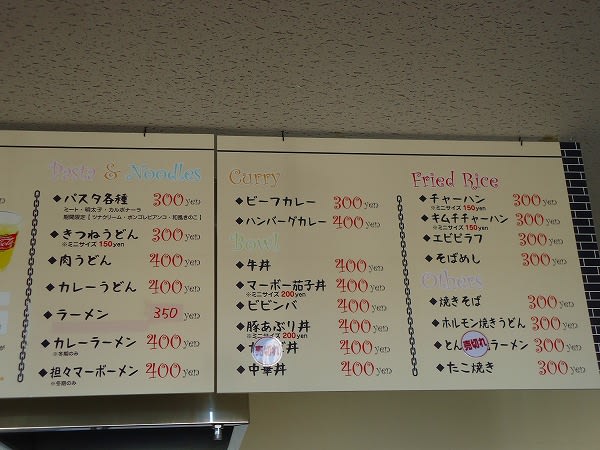 Pasta & Noodles
◆パスタ各種 300yen
ミート・明太子・カルボナーラ
期間限定【ツナクリーム・ボンゴレビアンコ・和風きのこ】
◆きつねうどん 300yen
※ミニサイズ 150yen
◆肉うどん 400yen
◆カレーうどん 400yen
◆ラーメン 350yen
◆カレーラーメン 400yen
※冬期のみ
◆担々マーボーメン 400yen
※冬期のみ
Curry
◆ビーフカレー 300yen
◆ハンバーグカレー 400yen
Bowl
◆牛丼 400yen
◆マーボー茄子丼 400yen
※ミニサイズ 200yen
◆ビビンバ 400yen
◆豚あぶり丼 400yen
※ミニサイズ 200yen
丼 400yen
◆中華丼 400yen
Fried Rice
◆チャーハン 300yen
※ミニサイズ 150yen
◆キムチチャーハン 300yen
※ミニサイズ 150yen
◆エビピラフ 300yen
◆そばめし 300yen
Others
◆焼きそば 300yen
◆ホルモン焼きうどん 300yen
◆とん 売切れ ラーメン 300yen
◆たこ焼き 300yen